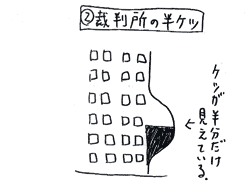 ②裁判所の半ケツ
ケツが半分だけ
見えている。